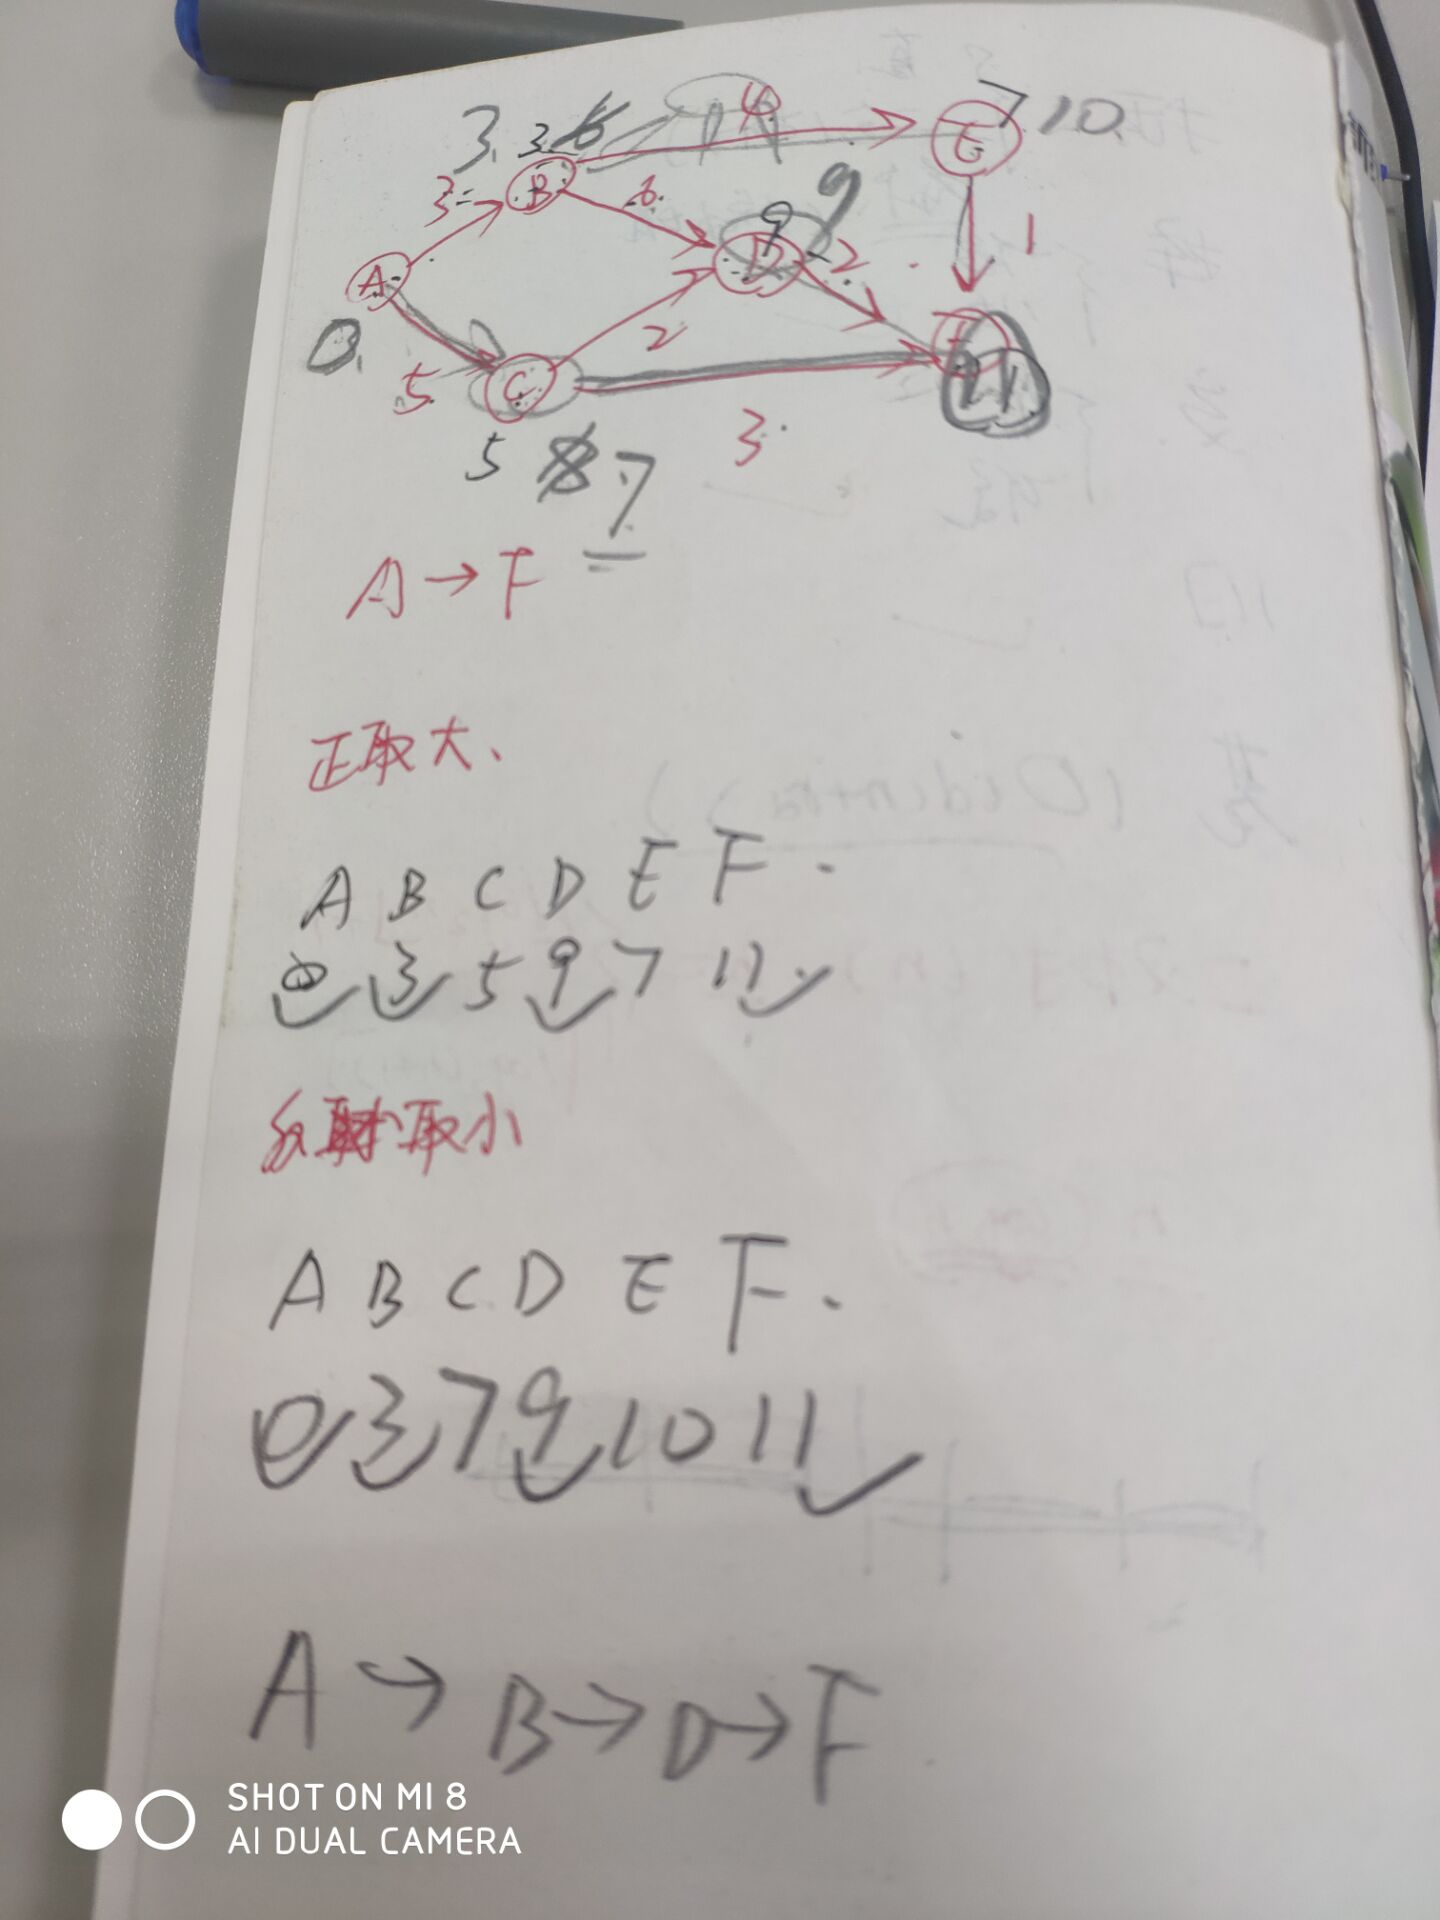 3. 3 6 4 E 7 10.
3 B 6 9 9
A D 2 1
0. 2 F
5 C 11
3
5 8 7
A→F
正取大、
A B C D E F .
0 3 5 9 7 11
反 取小
A B C D E F .
0 3 7 9 10 11
A→B→D→F
SHOT ON MI 8
AI DUAL CAMERA